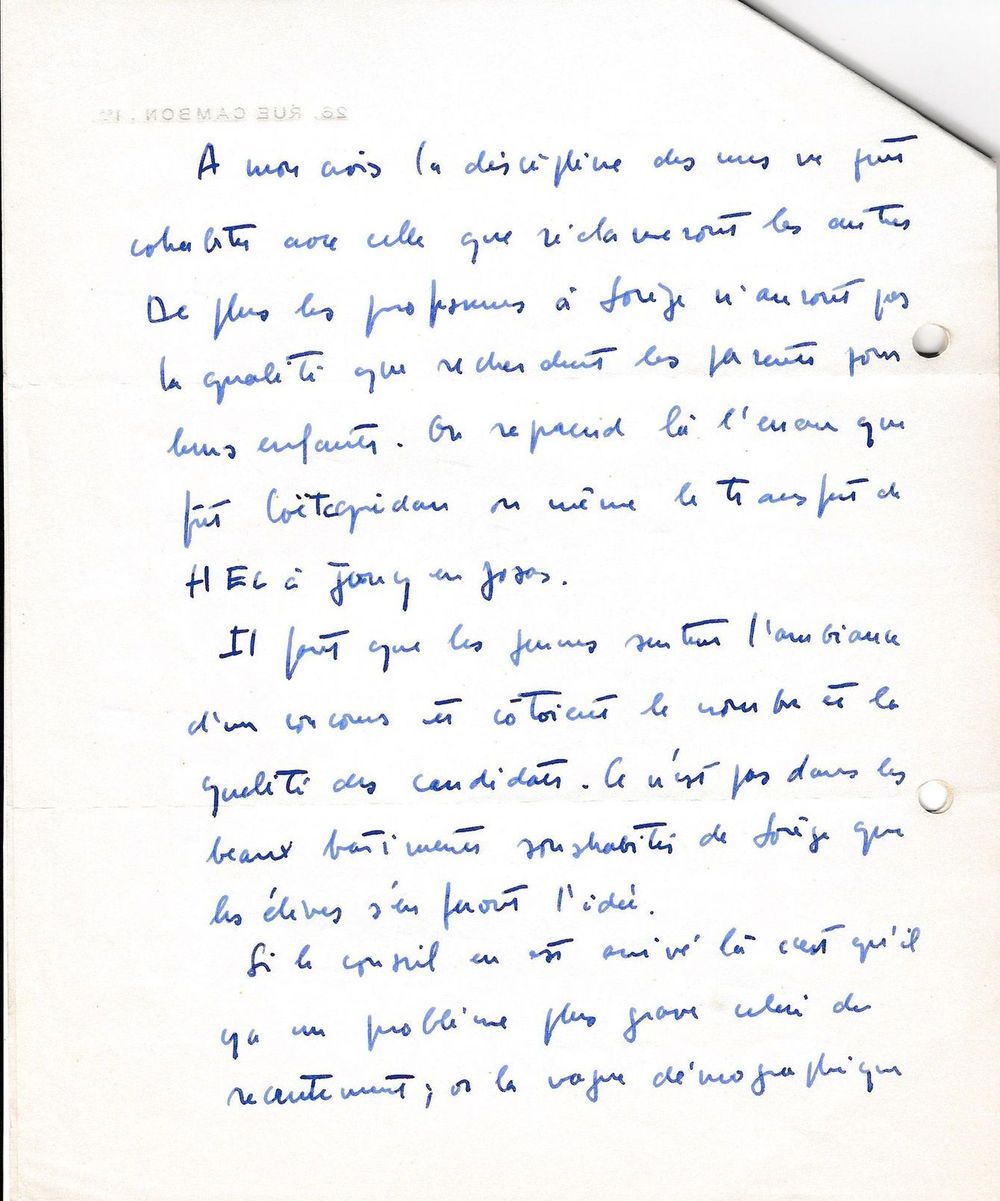 26, RUE CAMBON. 1er
A mon avis la discipline des uns ne peut
cohabiter avec celle que réclameront les autres
De plus les professeurs à Sorèze n'auront pas
la qualité que recherchent les parents pour
leurs enfants. On reprend là l'erreur que
fut Coëtquidan ou même le transfert de
HEC à Jouy en Josas.
Il faut que les jeunes sentent l'ambiance
d'un concours et côtoient le nombre et la
qualité des candidats. Ce n'est pas dans les
beaux bâtiments de Sorèze que
les élèves s'en feront l'idée.
Si le conseil en est arrivé là c'est qu'il
ya un problème plus grave celui du
recrutement; or la vague démographique